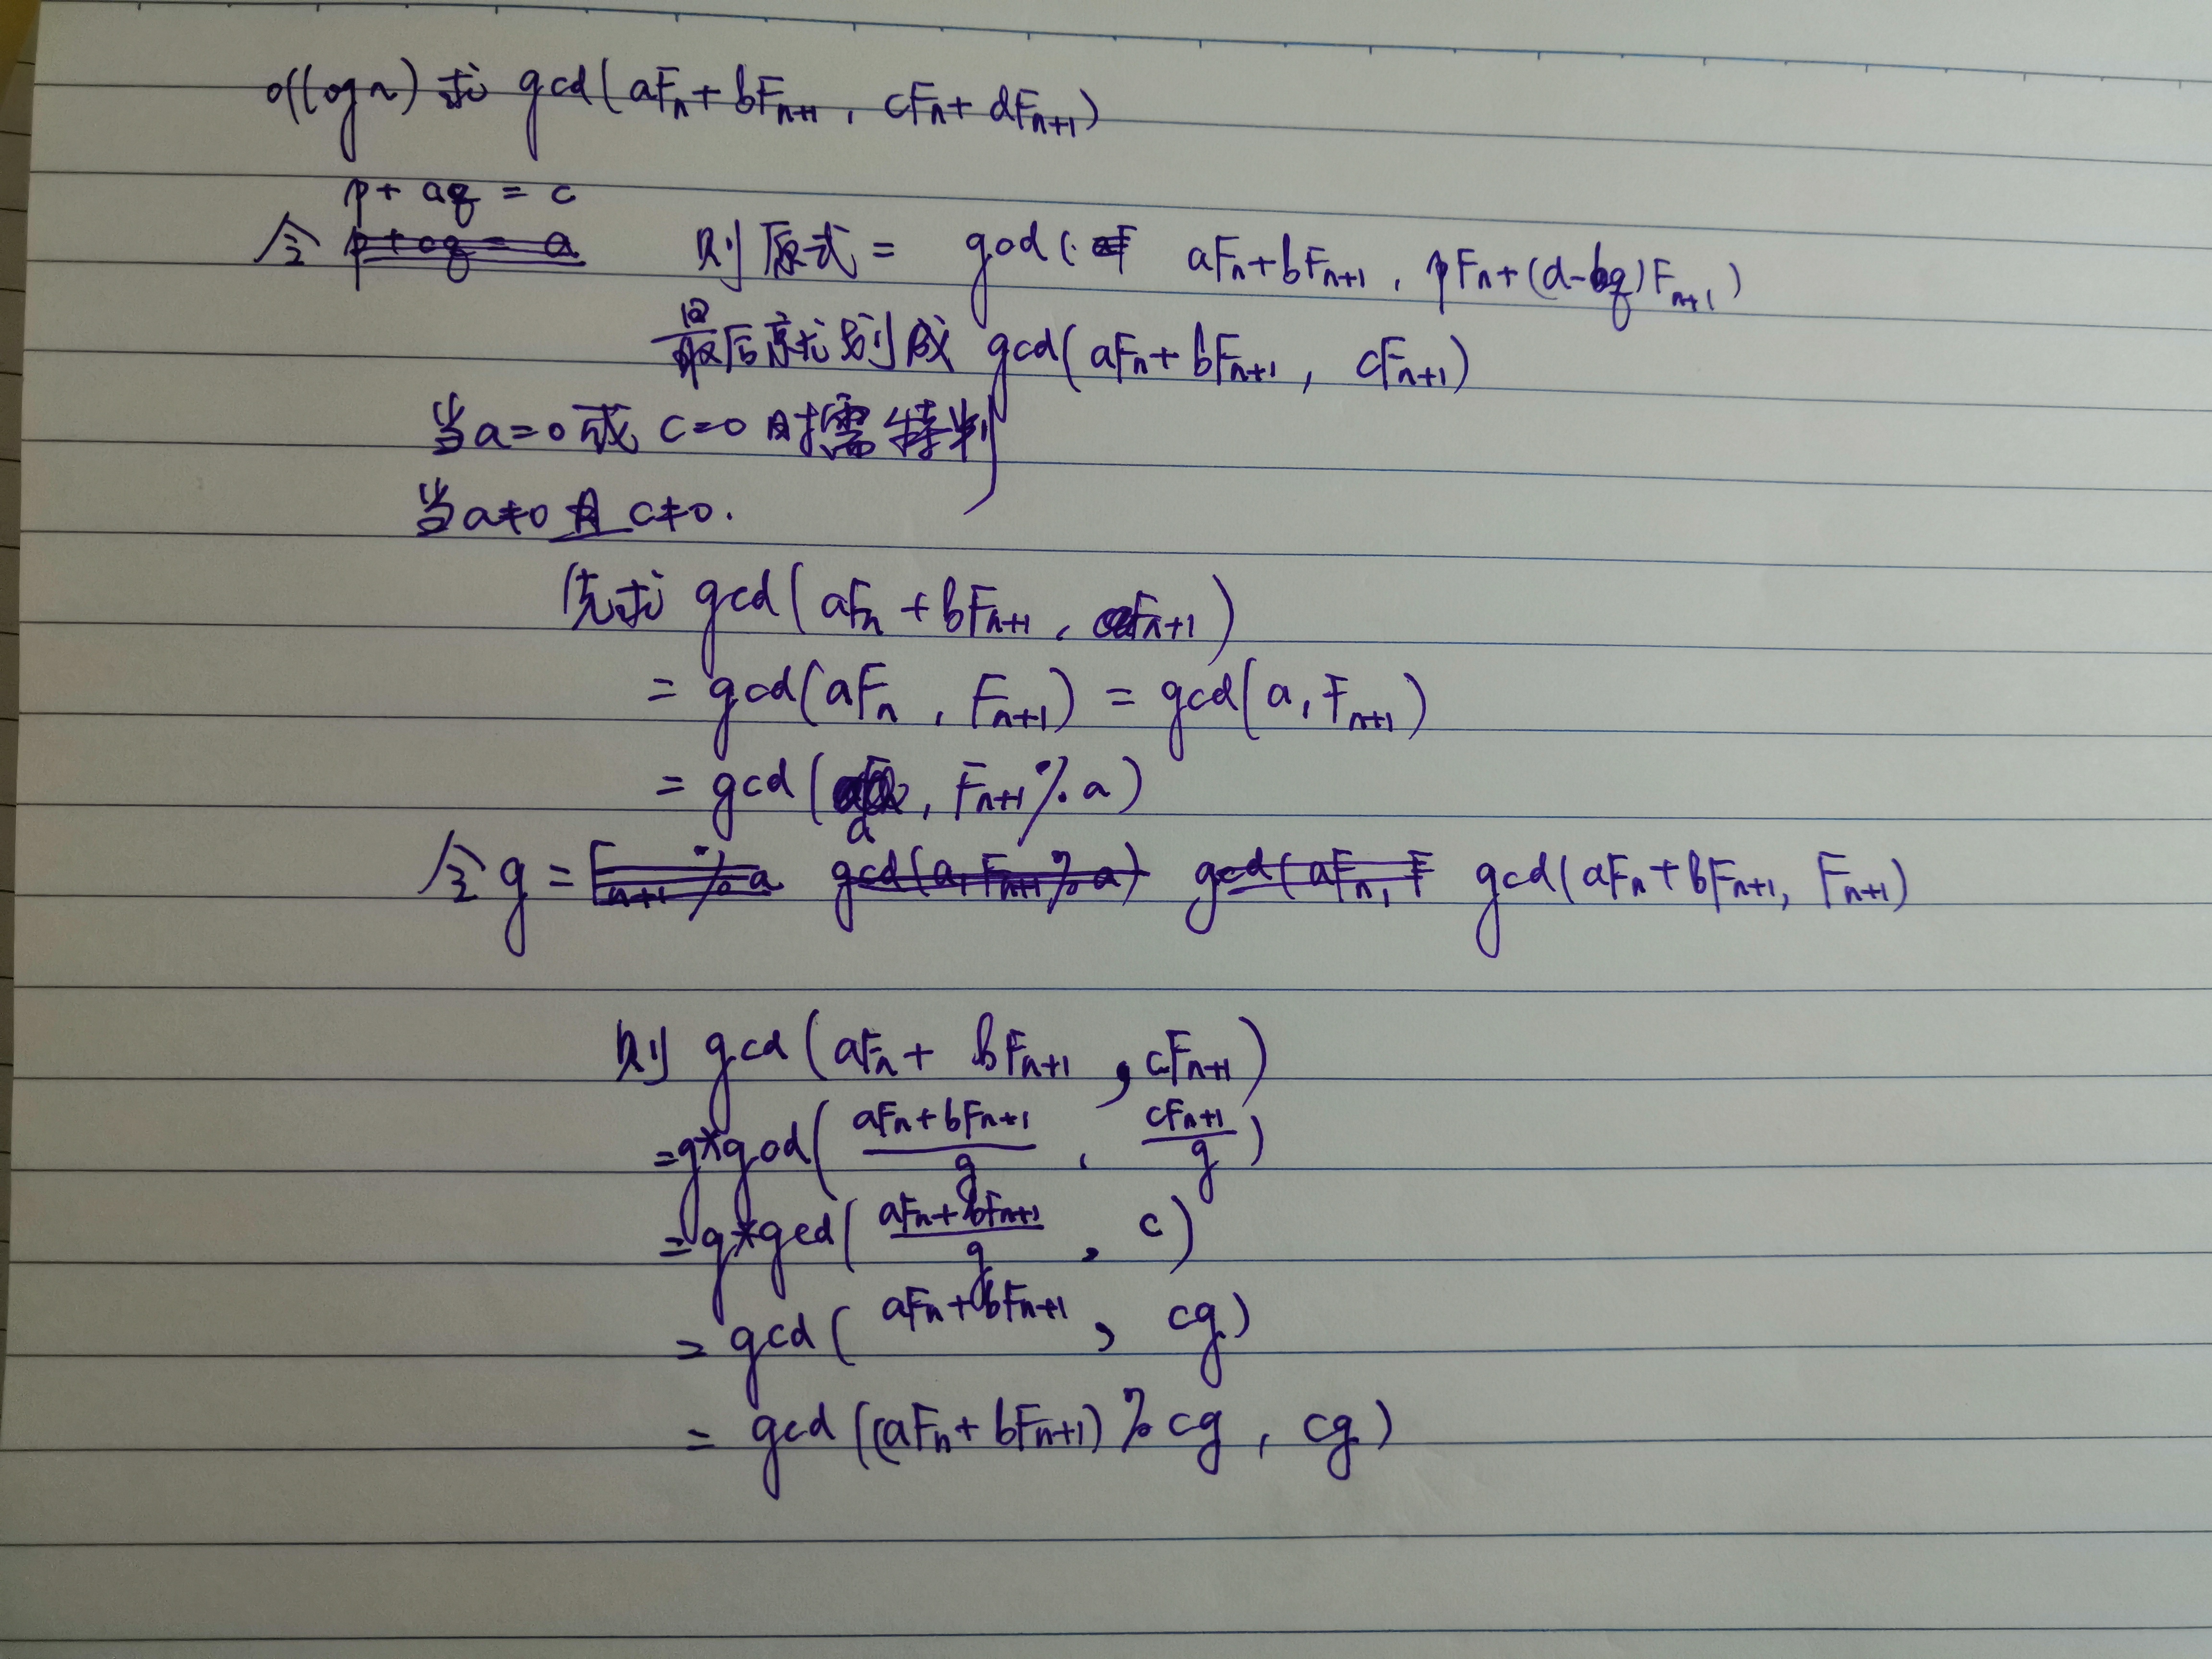 O(log n) 求 gcd(aFₙ+bFₙ₊₁, cFₙ+dFₙ₊₁)
p+aq = c
令 p+cq = a 则原式 = gcd( aFₙ+bFₙ₊₁, pFₙ+(d-bq)Fₙ₊₁)
最后就变成 gcd(aFₙ+bFₙ₊₁, cFₙ₊₁)
当a=0或 c=0时需特判
当a≠0且c≠0.
先求 gcd(aFₙ+bFₙ₊₁, Fₙ₊₁)
= gcd(aFₙ, Fₙ₊₁) = gcd(a, Fₙ₊₁)
= gcd(a, Fₙ₊₁%a)
令 g = Fₙ₊₁%a gcd(a, Fₙ₊₁%a) gcd(aFₙ, F gcd(aFₙ+bFₙ₊₁, Fₙ₊₁)
则 gcd(aFₙ+ bFₙ₊₁, cFₙ₊₁)
=g*gcd((aFₙ+bFₙ₊₁)/g, cFₙ₊₁/g)
=g*gcd((aFₙ+bFₙ₊₁)/g, c)
= gcd(aFₙ+bFₙ₊₁, cg)
= gcd((aFₙ+bFₙ₊₁)%cg, cg)